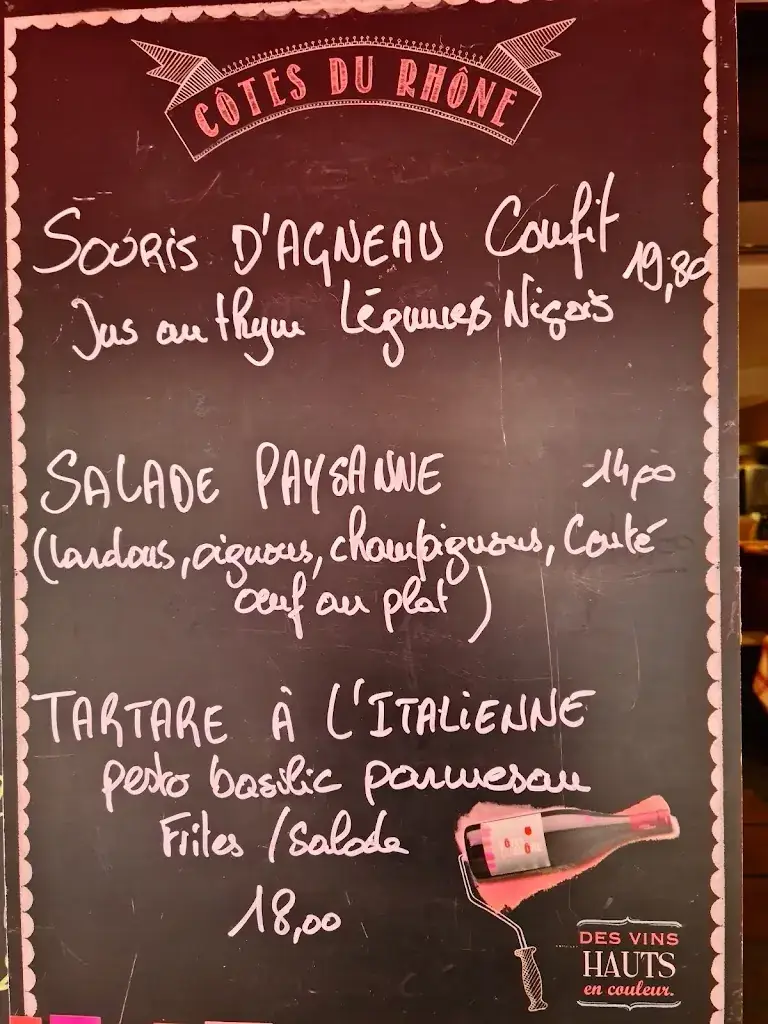 CÔTES DU RHÔNE
SOURIS D'AGNEAU Confit
19,80
Jus au thym Légumes Niçois
SALADE PAYSANNE 14,00
(lardons, oignons, champignons, Comté
œuf au plat)
TARTARE À L'ITALIENNE
pesto basilic parmesan
Frites / Salade
18,00
DES VINS
HAUTS
en couleur.